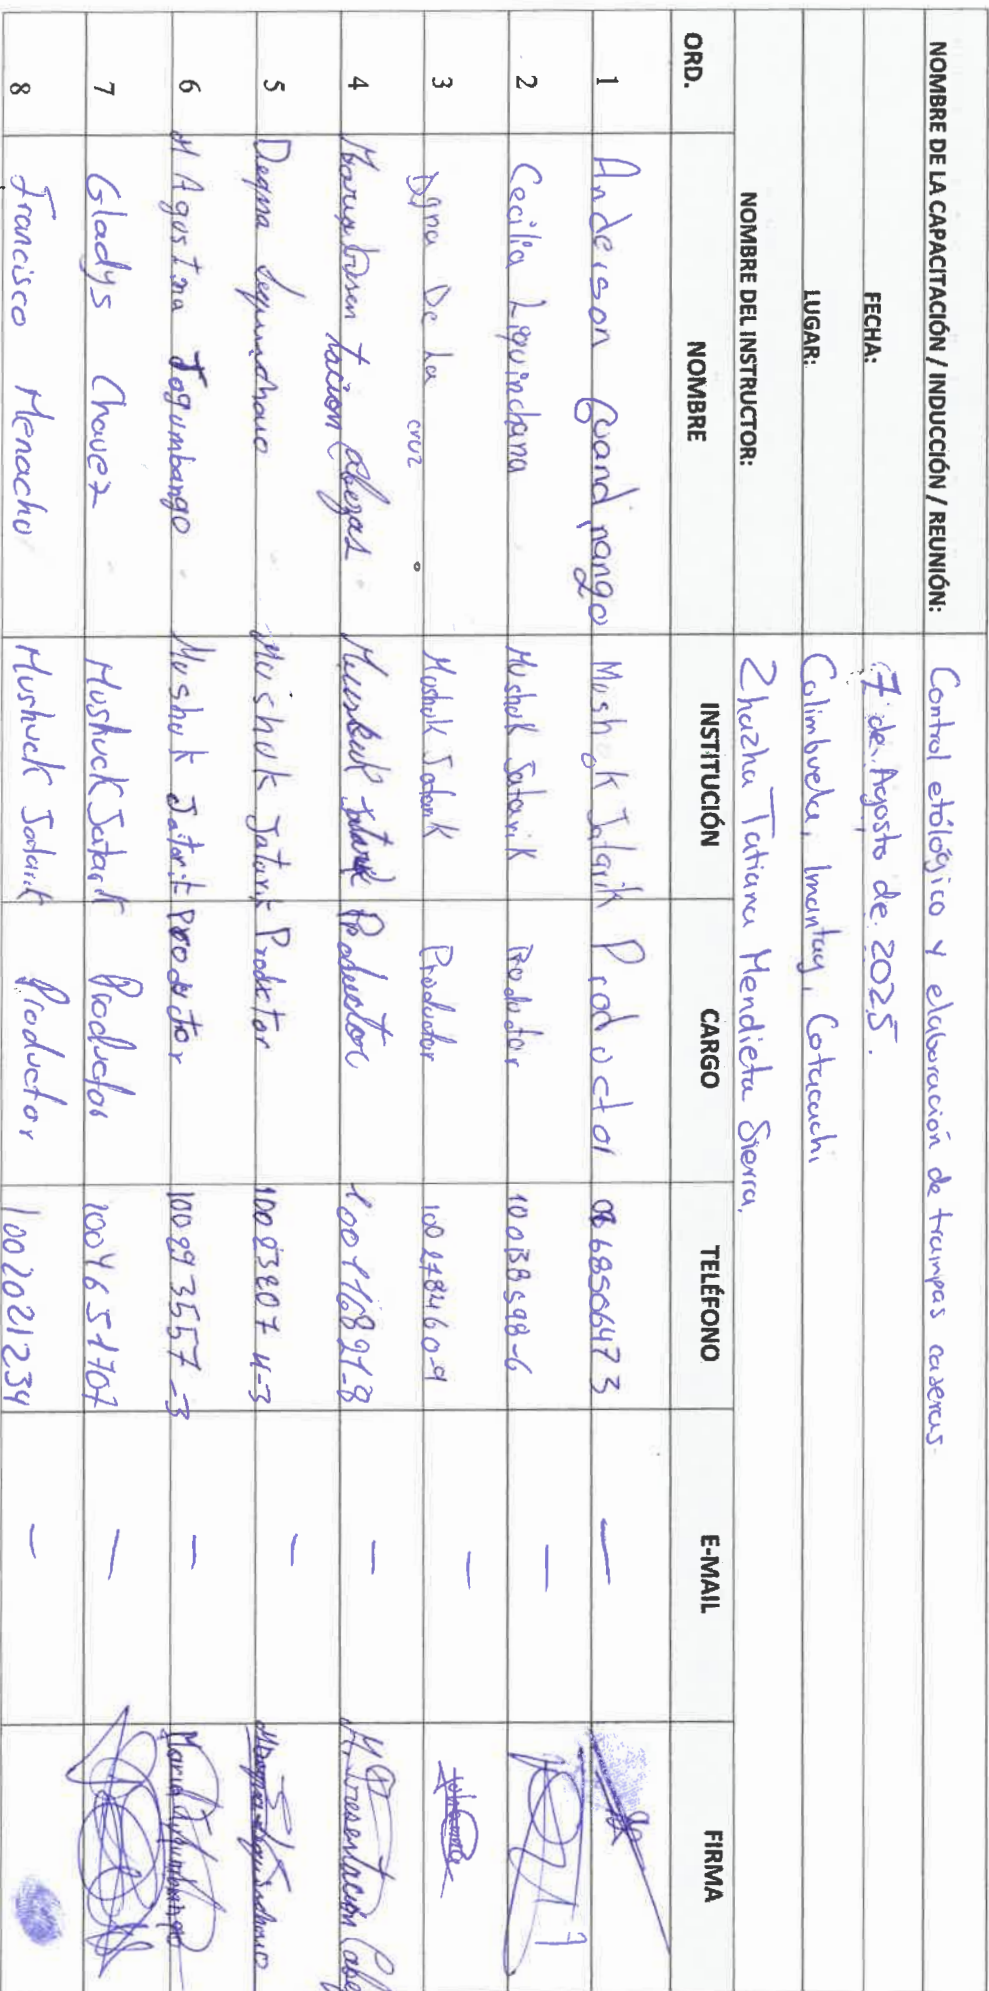 NOMBRE DE LA CAPACITACIÓN / INDUCCIÓN / REUNIÓN: Control etológico y elaboración de trampas caseras.
FECHA: 7 de Agosto de 2025.
LUGAR: Colimbuela, Imantag, Cotacachi
NOMBRE DEL INSTRUCTOR: Zhazha Tatiana Mendieta Sierra.
ORD. NOMBRE INSTITUCIÓN CARGO TELÉFONO E-MAIL FIRMA
1 Anderson Guandinango Mushuk Jatarik Productor 0668506473 —
2 Cecilia Liquinchana Mushuk Satarik Productor —
3 Digna De La cruz Mushuk Satarik Productor 100278460-9 —
4 Maria Presentacion Cabezas Mushuk Jatarik Productor 100116891-8 — M. Presentación Cabe
5 Degna Mushuk Jatarik Productor —
6 M Agostina Tugumbango Mushuk Jatarik Productor 10093557-3 — Maria Tugumbango
7 Gladys Chavez Mushuck Jatarik Productor 1004651707 —
8 Francisco Menacho Mushuck Jatarik Productor 1002021234 —